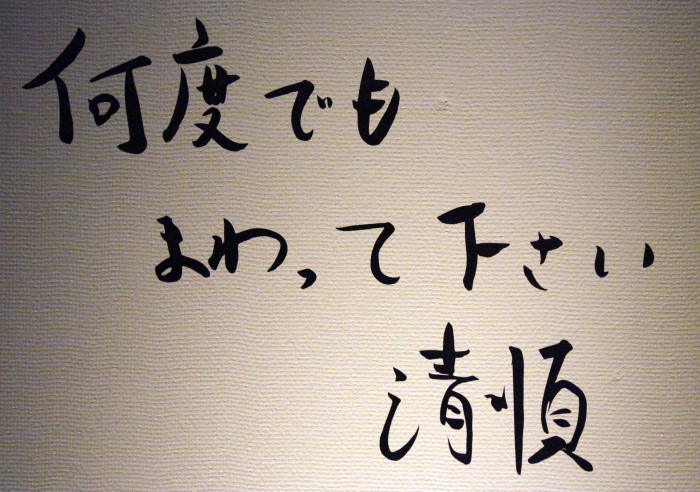 何度でも
まわって下さい
清順